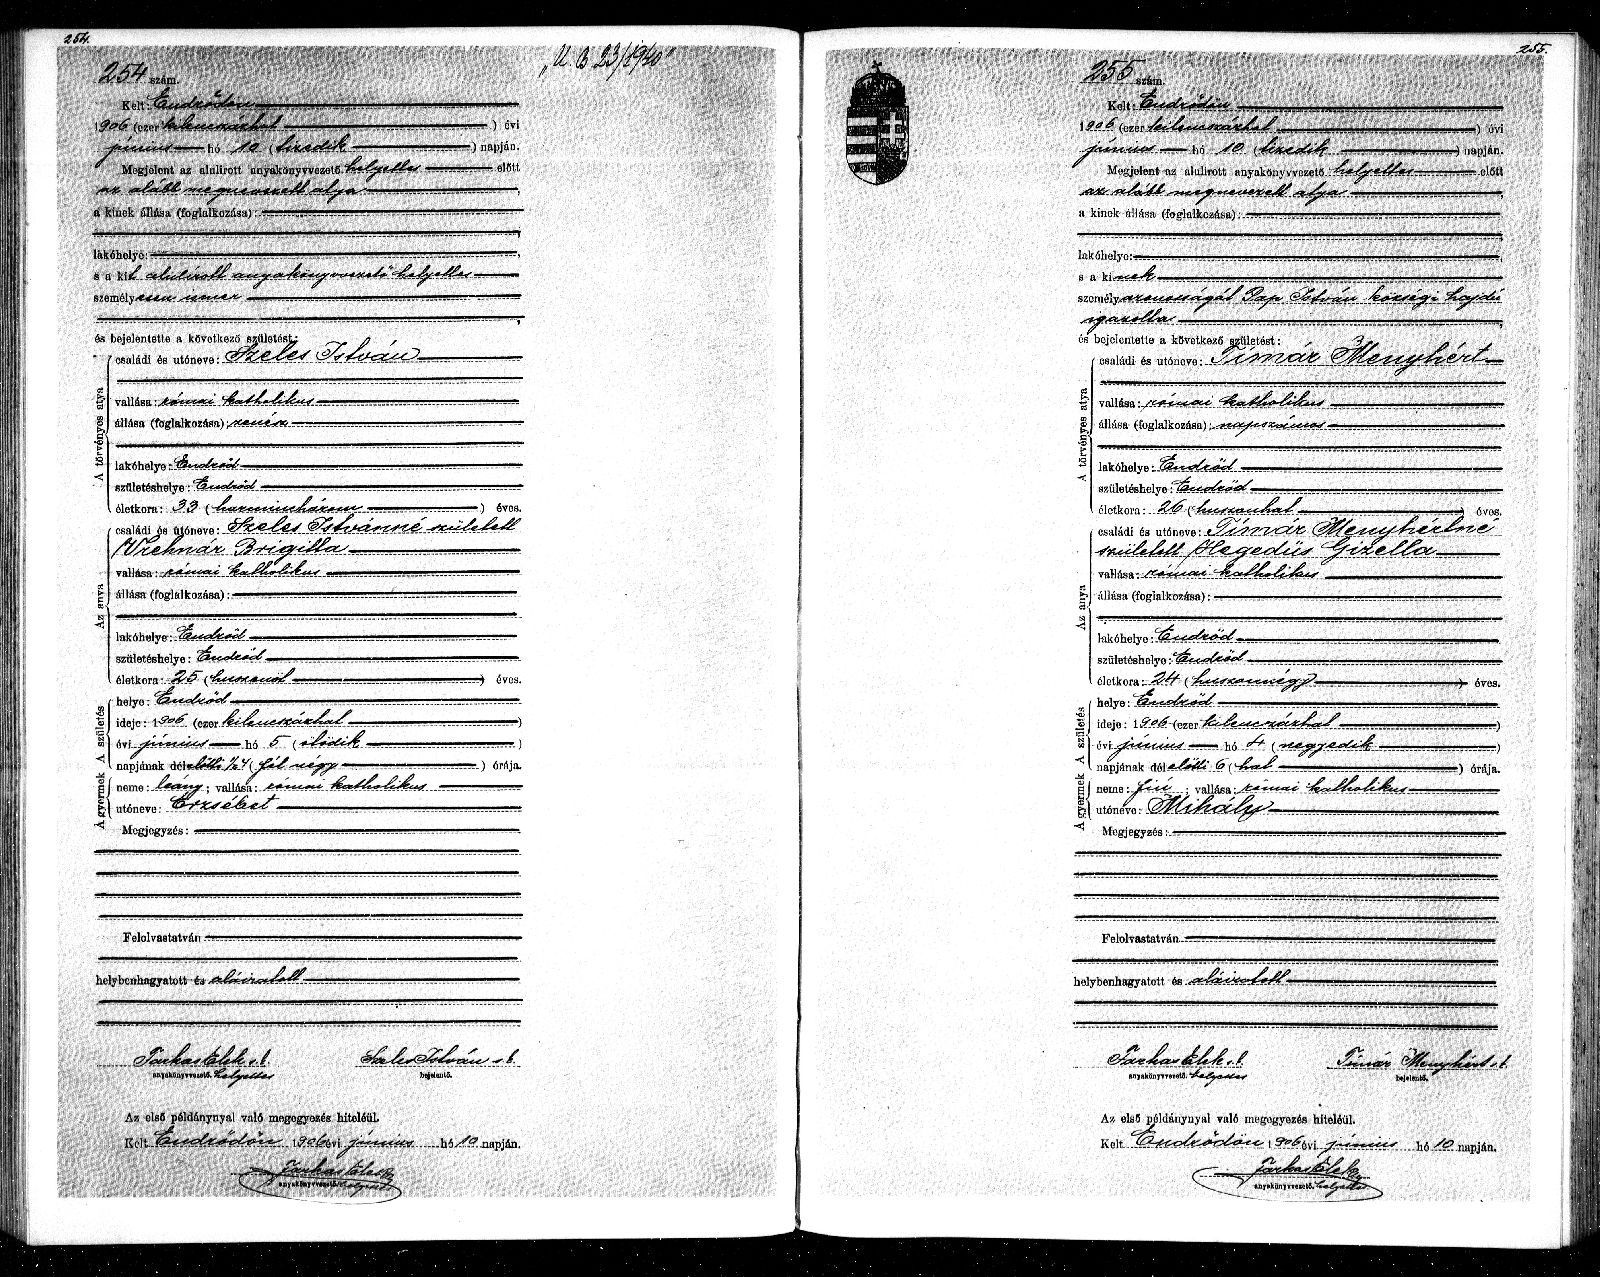 254.
254 szám.
„U. B 23/1940"
Kelt: Endrődön
1906 (ezer kilenczázhat ) évi
június hó 10 (tizedik ) napján.
Megjelent az alulirott anyakönyvvezető helyettes előtt
az alább megnevezett atya ,
a kinek állása (foglalkozása):
lakóhelye:
s a kit alulírott anyakönyvvezető helyettes
személyesen ismer
és bejelentette a következő születést:
A törvényes atya
családi és utóneve: Szeles István
vallása: római katholikus
állása (foglalkozása): zenész
lakóhelye: Endrőd
születéshelye: Endrőd
életkora: 33 (harminchárom ) éves.
Az anya
családi és utóneve: Szeles Istvánné született
Vrchnár Brigitta
vallása: római katholikus
állása (foglalkozása):
lakóhelye: Endrőd
születéshelye: Endrőd
életkora: 25 (huszonöt ) éves.
A születés
helye: Endrőd
ideje: 1906 (ezer kilenczázhat )
évi június hó 5 (ötödik )
napjának délelőtti ½4 (fél négy ) órája.
A gyermek
neme: leány; vallása: római katholikus
utóneve: Erzsébet
Megjegyzés:
Felolvastatván
helybenhagyatott és aláíratott
Farkas Elek s. k. Szeles István s. k.
anyakönyvvezető. helyettes bejelentő.
Az első példánynyal való megegyezés hiteléül.
Kelt Endrődön 1906 évi június hó 10 napján.
Farkas Elek
anyakönyvvezető. helyettes
255.
255 szám.
Kelt: Endrődön
1906 (ezer kilenczázhat ) évi
június hó 10 (tizedik ) napján.
Megjelent az alulirott anyakönyvvezető helyettes előtt
az alább megnevezett atya ,
a kinek állása (foglalkozása):
lakóhelye:
s a kinek
személyazonosságát Pap István községi hajdú
igazolta
és bejelentette a következő születést:
A törvényes atya
családi és utóneve: Tímár Menyhért
vallása: római katholikus
állása (foglalkozása): napszámos
lakóhelye: Endrőd
születéshelye: Endrőd
életkora: 26 (huszonhat ) éves.
Az anya
családi és utóneve: Tímár Menyhértné
született Hegedüs Gizella
vallása: római katholikus
állása (foglalkozása):
lakóhelye: Endrőd
születéshelye: Endrőd
életkora: 24 (huszonnégy ) éves.
A születés
helye: Endrőd
ideje: 1906 (ezer kilenczázhat )
évi június hó 4 (negyedik )
napjának délelőtti 6 (hat ) órája.
A gyermek
neme: fiú ; vallása: római katholikus
utóneve: Mihály
Megjegyzés:
Felolvastatván
helybenhagyatott és aláíratott
Farkas Elek s. k. Tímár Menyhért s. k.
anyakönyvvezető. helyettes bejelentő.
Az első példánynyal való megegyezés hiteléül.
Kelt Endrődön 1906 évi június hó 10 napján.
Farkas Elek
anyakönyvvezető. helyettes